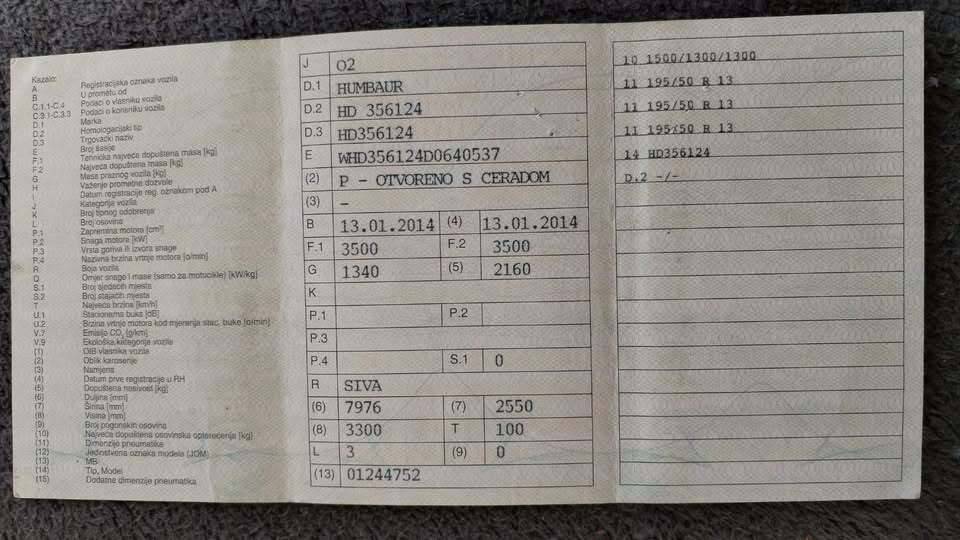 Kazalo:
A Registracijska oznaka vozila
B U prometu od
C.1.1-C.4 Podaci o vlasniku vozila
C.3.1-C.3.3 Podaci o korisniku vozila
D.1 Marka
D.2 Homologacijski tip
D.3 Trgovački naziv
E Broj šasije
F.1 Tehnička najveće dopuštena masa [kg]
F.2 Najveća dopuštena masa [kg]
G Masa praznog vozila [kg]
H Važenje prometne dozvole
I Datum registracije reg. oznakom pod A
J Kategorija vozila
K Broj tipnog odobrenja
L Broj osovina
P.1 Zapremina motora [cm³]
P.2 Snaga motora [kW]
P.3 Vrsta goriva ili izvora snage
P.4 Nazivna brzina vrtnje motora [o/min]
R Boja vozila
Q Omjer snage i mase (samo za motocikle) [kW/kg]
S.1 Broj sjedećih mjesta
S.2 Broj stajaćih mjesta
T Najveća brzina [km/h]
U.1 Stacionarna buka [dB]
U.2 Brzina vrtnje motora kod mjerenja stac. buke [o/min]
V.7 Emisija CO₂ [g/km]
V.9 Ekološka kategorija vozila
(1) OIB vlasnika vozila
(2) Oblik karoserije
(3) Namjena
(4) Datum prve registracije u RH
(5) Dopuštena nosivost [kg]
(6) Duljina [mm]
(7) Širina [mm]
(8) Visina [mm]
(9) Broj pogonskih osovina
(10) Najveće dopuštena osovinska opterećenja [kg]
(11) Dimenzije pneumatika
(12) Jedinstvena oznaka modela (JOM)
(13) MB
(14) Tip, Model
(15) Dodatne dimenzije pneumatika
J O2
D.1 HUMBAUR
D.2 HD 356124
D.3 HD356124
E WHD356124D0640537
(2) P - OTVORENO S CERADOM
(3) -
B 13.01.2014 (4) 13.01.2014
F.1 3500 F.2 3500
G 1340 (5) 2160
K
P.1 P.2
P.3
P.4 S.1 0
R SIVA
(6) 7976 (7) 2550
(8) 3300 T 100
L 3 (9) 0
(13) 01244752
10 1500/1300/1300
11 195/50 R 13
11 195/50 R 13
11 195/50 R 13
14 HD356124
D.2 -/-